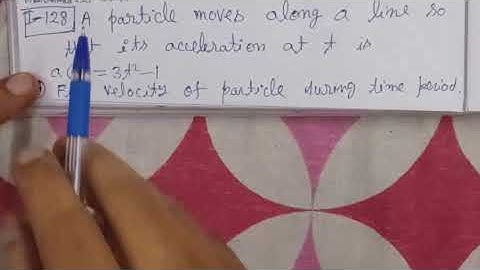 I-128 A particle moves along a line so
its acceleration at t is
= 3t²-1
velocity of particle during time period.